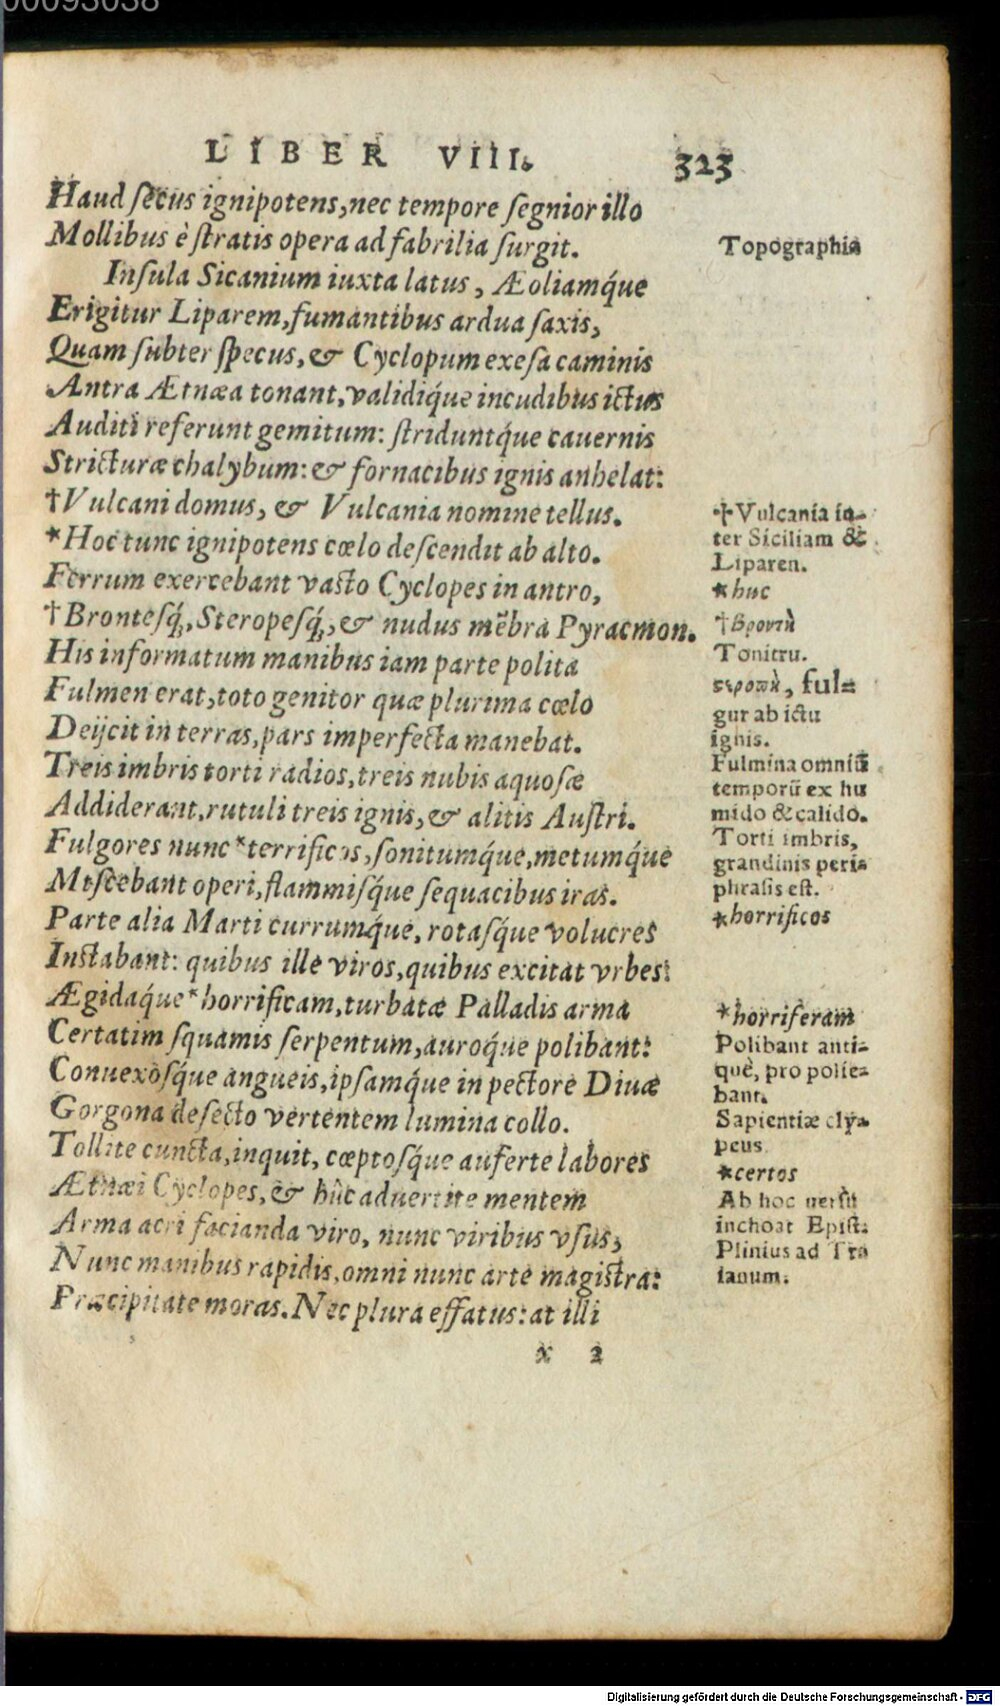 00093038
LIBER VIII. 323
Haud ſecus ignipotens, nec tempore ſegnior illo
Mollibus è ſtratis opera ad fabrilia ſurgit.
Inſula Sicanium iuxta latus, Æoliamq́ue
Erigitur Liparem, fumantibus ardua ſaxis,
Quam ſubter ſpecus, & Cyclopum exeſa caminis
Antra Ætnæa tonant, validiq́ue incudibus ictus
Auditi referunt gemitum: ſtriduntq́ue cauernis
Stricturæ chalybum: & fornacibus ignis anhelat:
†Vulcani domus, & Vulcania nomine tellus.
*Hoc tunc ignipotens cœlo deſcendit ab alto.
Ferrum exercebant vaſto Cyclopes in antro,
†Bronteſq́;, Steropeſq́;, & nudus mẽbra Pyracmon.
His informatum manibus iam parte polita
Fulmen erat, toto genitor quæ plurima cœlo
Deijcit in terras, pars imperfecta manebat.
Treis imbris torti radios, treis nubis aquoſæ
Addiderant, rutuli treis ignis, & alitis Auſtri.
Fulgores nunc *terrificos, ſonitumq́ue, metumq́ue
Miſcebant operi, flammiſq́ue ſequacibus iras.
Parte alia Marti currumq́ue, rotaſq́ue volucres
Inſtabant: quibus ille viros, quibus excitat vrbes:
Ægidaq́ue *horrificam, turbatæ Palladis arma
Certatim ſquamis ſerpentum, auroq́ue polibant:
Conuexoſq́ue angueis, ipſamq́ue in pectore Diuæ
Gorgona deſecto vertentem lumina collo.
Tollite cuncta, inquit, cœptoſq́ue auferte labores
Ætnæi Cyclopes, & hûc aduertite mentem
Arma acri facianda viro, nunc viribus vſus,
Nunc manibus rapidis, omni nunc arte magiſtra:
Præcipitate moras. Nec plura effatus: at illi
x 2
Topographia
†Vulcania in-
ter Siciliam &
Liparen.
*huc
†Βροντὴ
Tonitru.
ςεροπὴ, ful-
gur ab ictu
ignis.
Fulmina omniũ
temporũ ex hu
mido & calido.
Torti imbris,
grandinis peri-
phraſis eſt.
*horrificos
*horriferam
Polibant anti-
què, pro polie-
bant.
Sapientiæ cly-
peus
*certos
Ab hoc uerſu
inchoat Epiſt.
Plinius ad Tra
ianum.
Digitalisierung gefördert durch die Deutsche Forschungsgemeinschaft - DFG